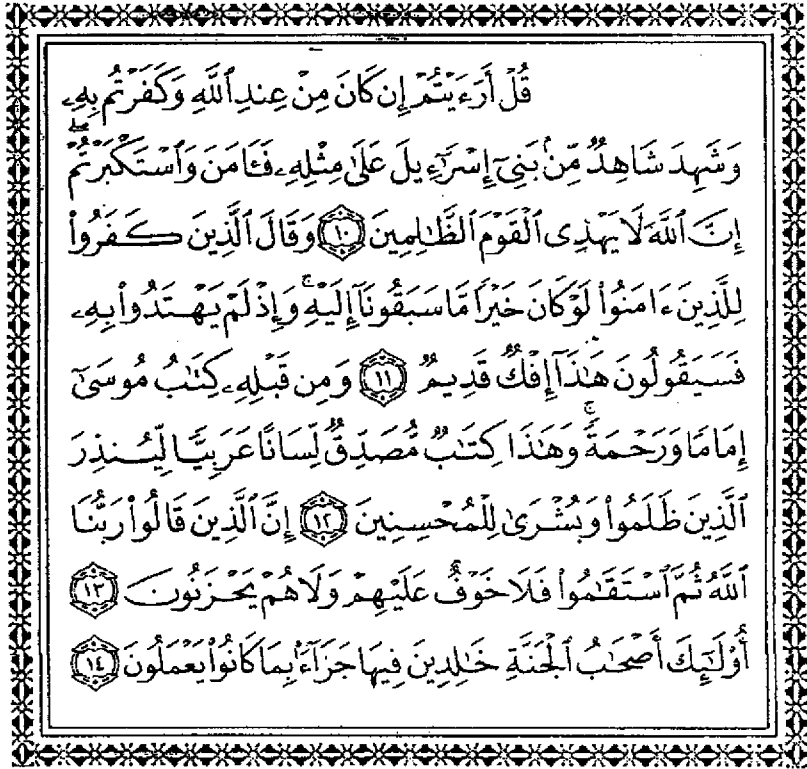 قُلْ أَرَءَيْتُمْ إِن كَانَ مِنْ عِندِ ٱللَّهِ وَكَفَرْتُم بِهِۦ
وَشَهِدَ شَاهِدٌ مِّنۢ بَنِىٓ إِسْرَٰٓءِيلَ عَلَىٰ مِثْلِهِۦ فَـَٔامَنَ وَٱسْتَكْبَرْتُمْ ۖ
إِنَّ ٱللَّهَ لَا يَهْدِى ٱلْقَوْمَ ٱلظَّٰلِمِينَ ١٠ وَقَالَ ٱلَّذِينَ كَفَرُوا۟
لِلَّذِينَ ءَامَنُوا۟ لَوْ كَانَ خَيْرًا مَّا سَبَقُونَآ إِلَيْهِ ۚ وَإِذْ لَمْ يَهْتَدُوا۟ بِهِۦ
فَسَيَقُولُونَ هَٰذَآ إِفْكٌ قَدِيمٌ ١١ وَمِن قَبْلِهِۦ كِتَٰبُ مُوسَىٰٓ
إِمَامًا وَرَحْمَةً ۚ وَهَٰذَا كِتَٰبٌ مُّصَدِّقٌ لِّسَانًا عَرَبِيًّا لِّيُنذِرَ
ٱلَّذِينَ ظَلَمُوا۟ وَبُشْرَىٰ لِلْمُحْسِنِينَ ١٢ إِنَّ ٱلَّذِينَ قَالُوا۟ رَبُّنَا
ٱللَّهُ ثُمَّ ٱسْتَقَٰمُوا۟ فَلَا خَوْفٌ عَلَيْهِمْ وَلَا هُمْ يَحْزَنُونَ ١٣
أُو۟لَٰٓئِكَ أَصْحَٰبُ ٱلْجَنَّةِ خَٰلِدِينَ فِيهَا جَزَآءًۢ بِمَا كَانُوا۟ يَعْمَلُونَ ١٤